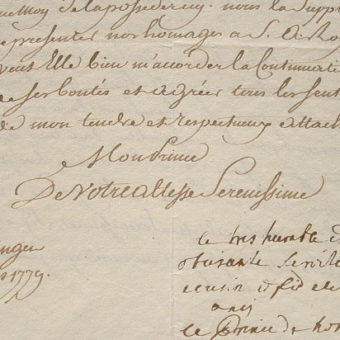 de la posseder icy. nous la supp
presenter nos homages a S. A. Ro
veut Elle bien m'accorder la Continuati
de ses bontés et agréer tous les sent
de mon tendre et respectueux attach
Monsieur
De Notre altesse Serenissime
le tres humble
obeisante servite
cousin et fid
ami
le Prince de
1779.